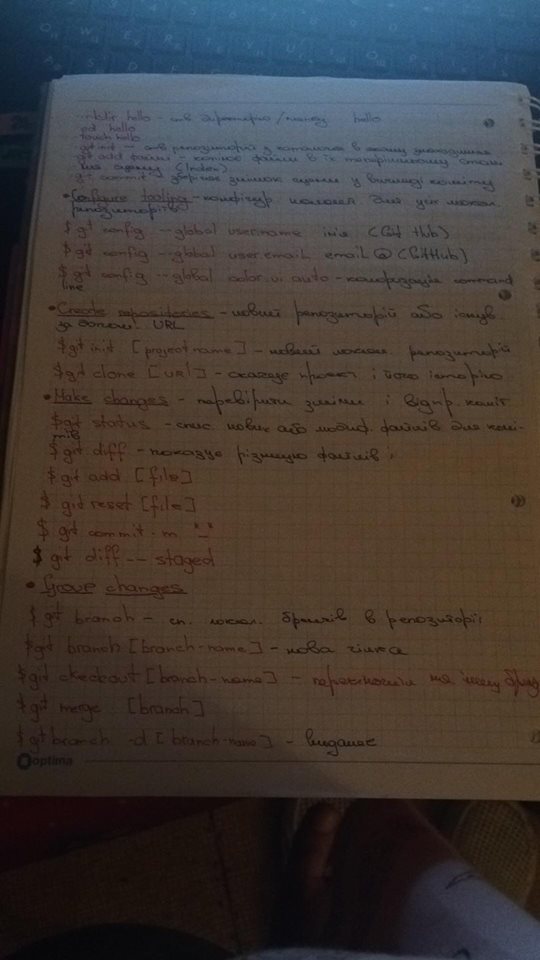 mkdir hello - ств директорію /папку hello
cd hello
touch hello
git init - ств репозиторій з каталога в якому знаходишся
git add файли - копіює файли в їх теперішньому стані
на сцену (Index)
git commit зберігає знімок сцени у вигляді коміту
• Configure tooling - конфігур. для усіх локал.
репозиторіїв
$ git config --global user.name ім'я (Git Hub)
$ git config --global user.email email@(GitHub)
$ git config --global color.ui auto - command
line
• Create repositories - новий репозиторій або існув.
за допом. URL
$ git init [project name] - новий локал. репозиторій
$ git clone [url] - скачує проект і його історію
• Make changes - перевірити зміни і коміт
$ git status - спис. нових або модиф. файлів для комі-
тів
$ git diff - показує різницю файлів
$ git add [file]
$ git reset [file]
$ git commit -m "_"
$ git diff -- staged
• Group changes
$ git branch - сп. локал. бранчів в репозиторії
$ git branch [branch-name] - нова гілка
$ git checkout [branch-name] - на іншу
$ git merge [branch]
$ git branch -d [branch-name] - видаляє
optima